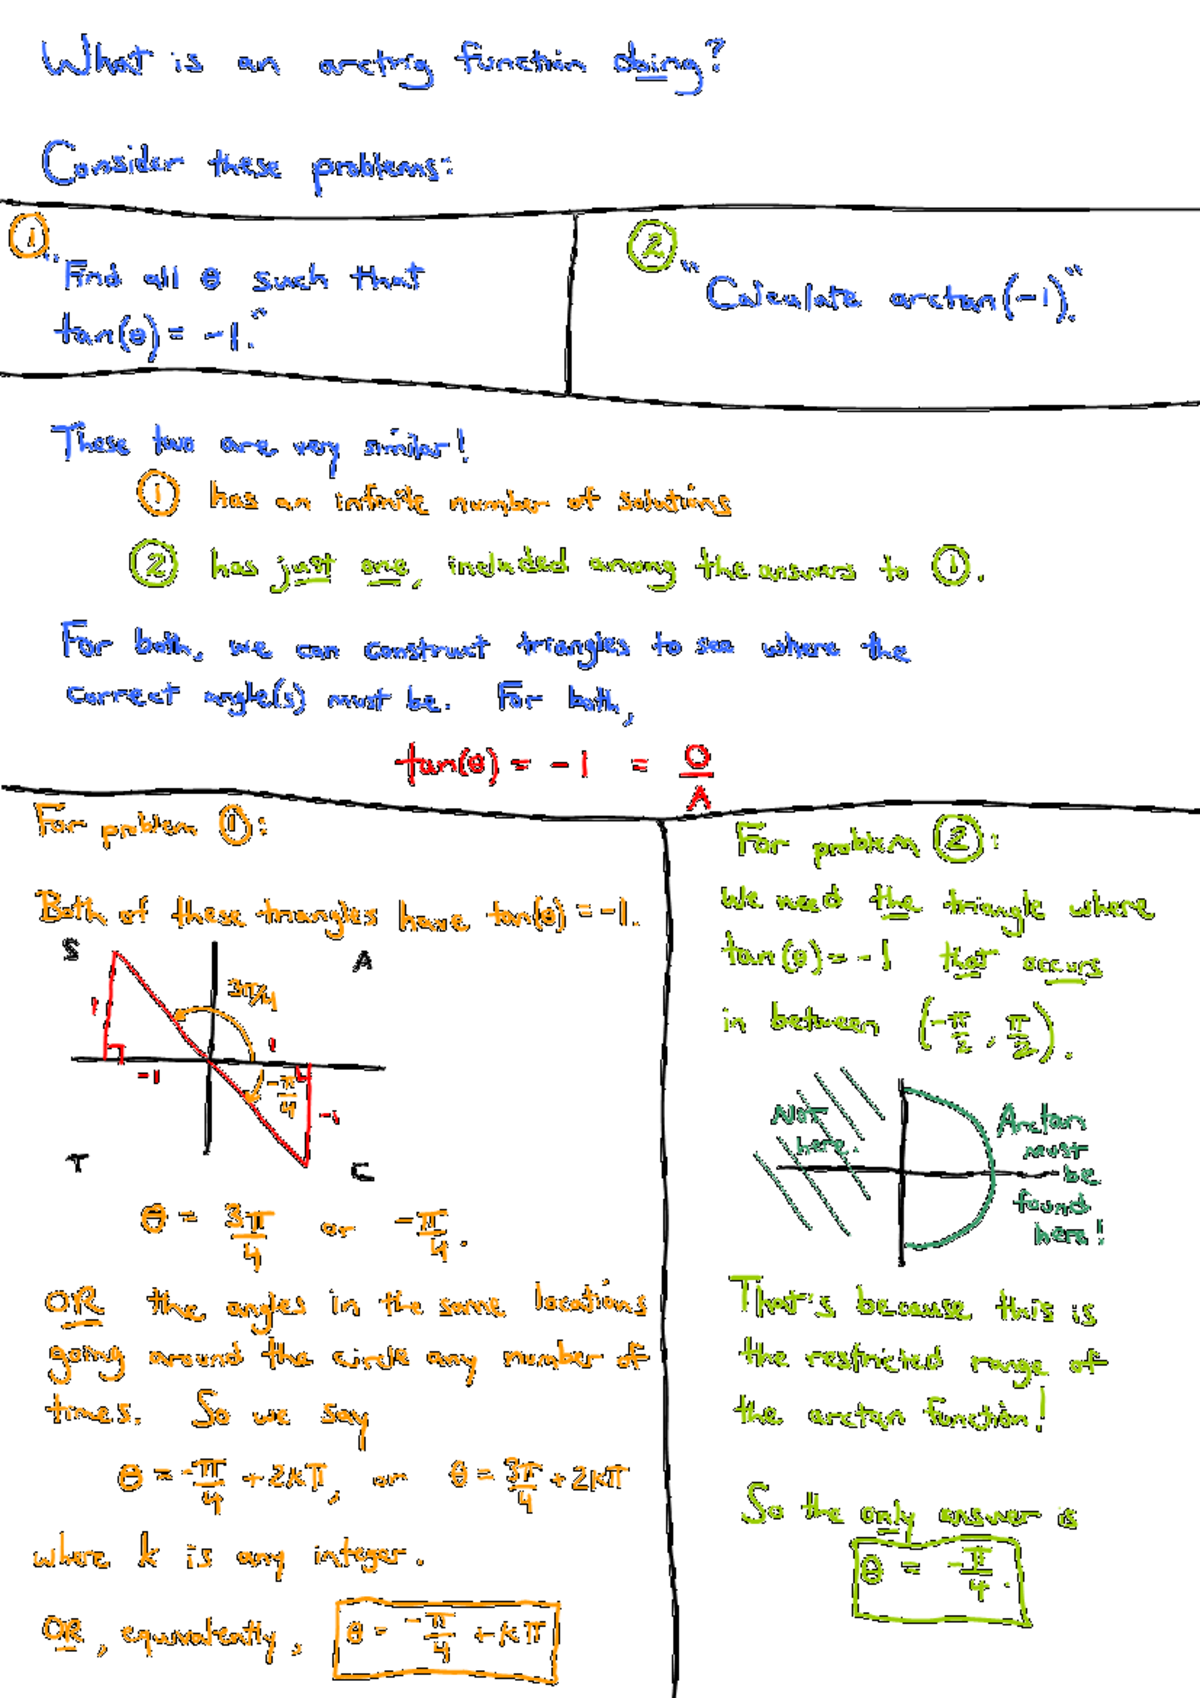 What is an arctrig function doing?
Consider these problems:
①
"Find all θ such that
tan(θ) = -1."
②
"Calculate arctan(-1)."
These two are very similar!
① has an infinite number of solutions
② has just one, included among the answers to ①.
For both, we can construct triangles to see where the
correct angle(s) must be. For both,
tan(θ) = -1 = O/A
For problem ①:
Both of these triangles have tan(θ) = -1.
S A
3π/4
1
1
-1
-π/4
-1
T C
θ = 3π/4 or -π/4.
OR the angles in the same locations
going around the circle any number of
times. So we say
θ = -π/4 + 2kπ, or θ = 3π/4 + 2kπ
where k is any integer.
OR, equivalently, θ = -π/4 + kπ
For problem ②:
We need the triangle where
tan(θ) = -1 that occurs
in between (-π/2, π/2).
Not
here.
Arctan
must
be
found
here!
That's because this is
the restricted range of
the arctan function!
So the only answer is
θ = -π/4.